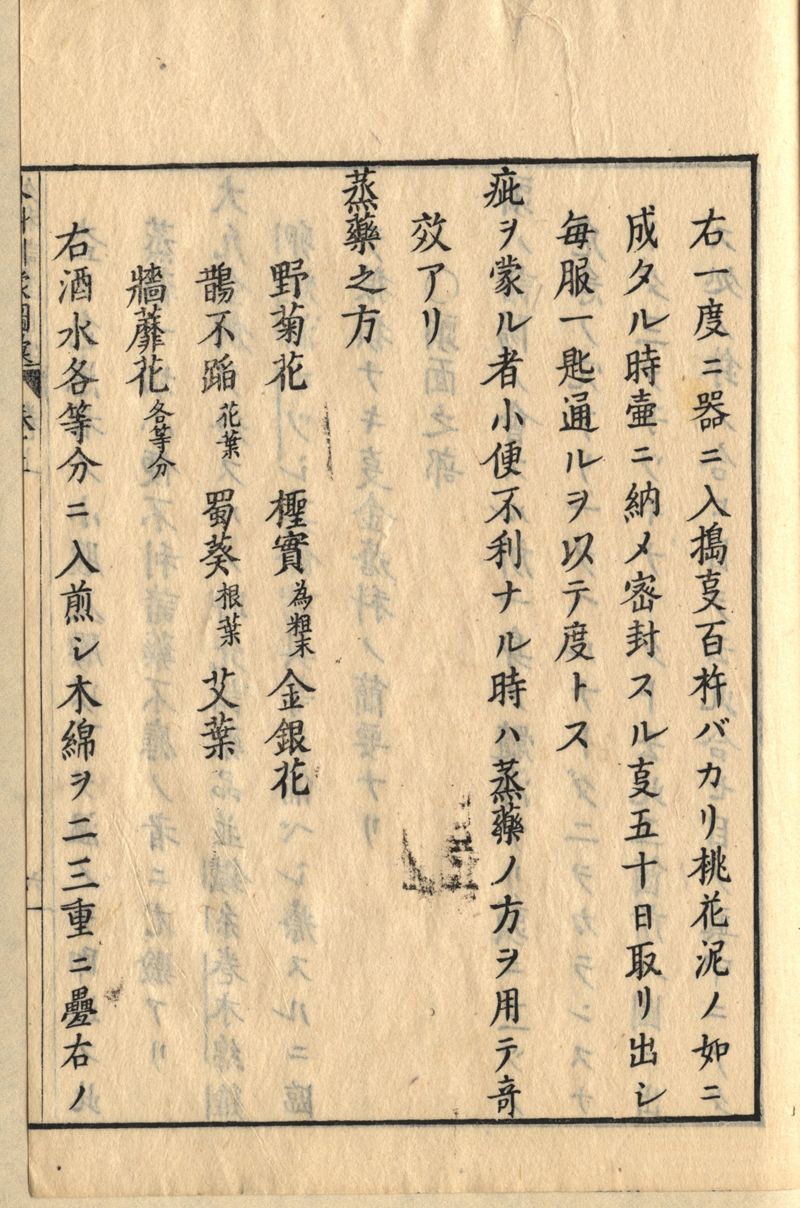 右一度ニ器ニ入搗𫝄百杵バカリ桃花泥ノ如ニ
成タル時壷ニ納メ密封スル𫝄五十日取リ出シ
毎服一匙通ルヲ以テ度トス
疵ヲ蒙ル者小便不利ナル時ハ蒸藥ノ方ヲ用テ奇
效アリ
蒸藥之方
野菊花 檉實為粗末 金銀花
鵲不踏花葉 蜀葵根葉 艾葉
牆蘼花各等分
右酒水各等分ニ入煎シ木綿ヲ二三重ニ疊右ノ